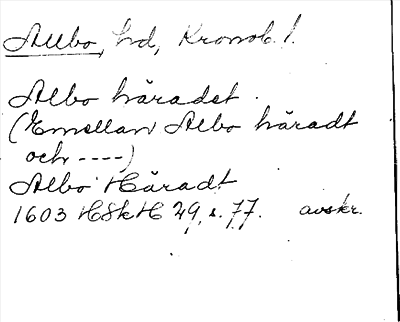 Allbo, hd, Kronob. l.
Albo häradet.
(Emellan Albo häradt
och ----)
Albo Häradt
1603 HSkH 29, s. 77. avskr.